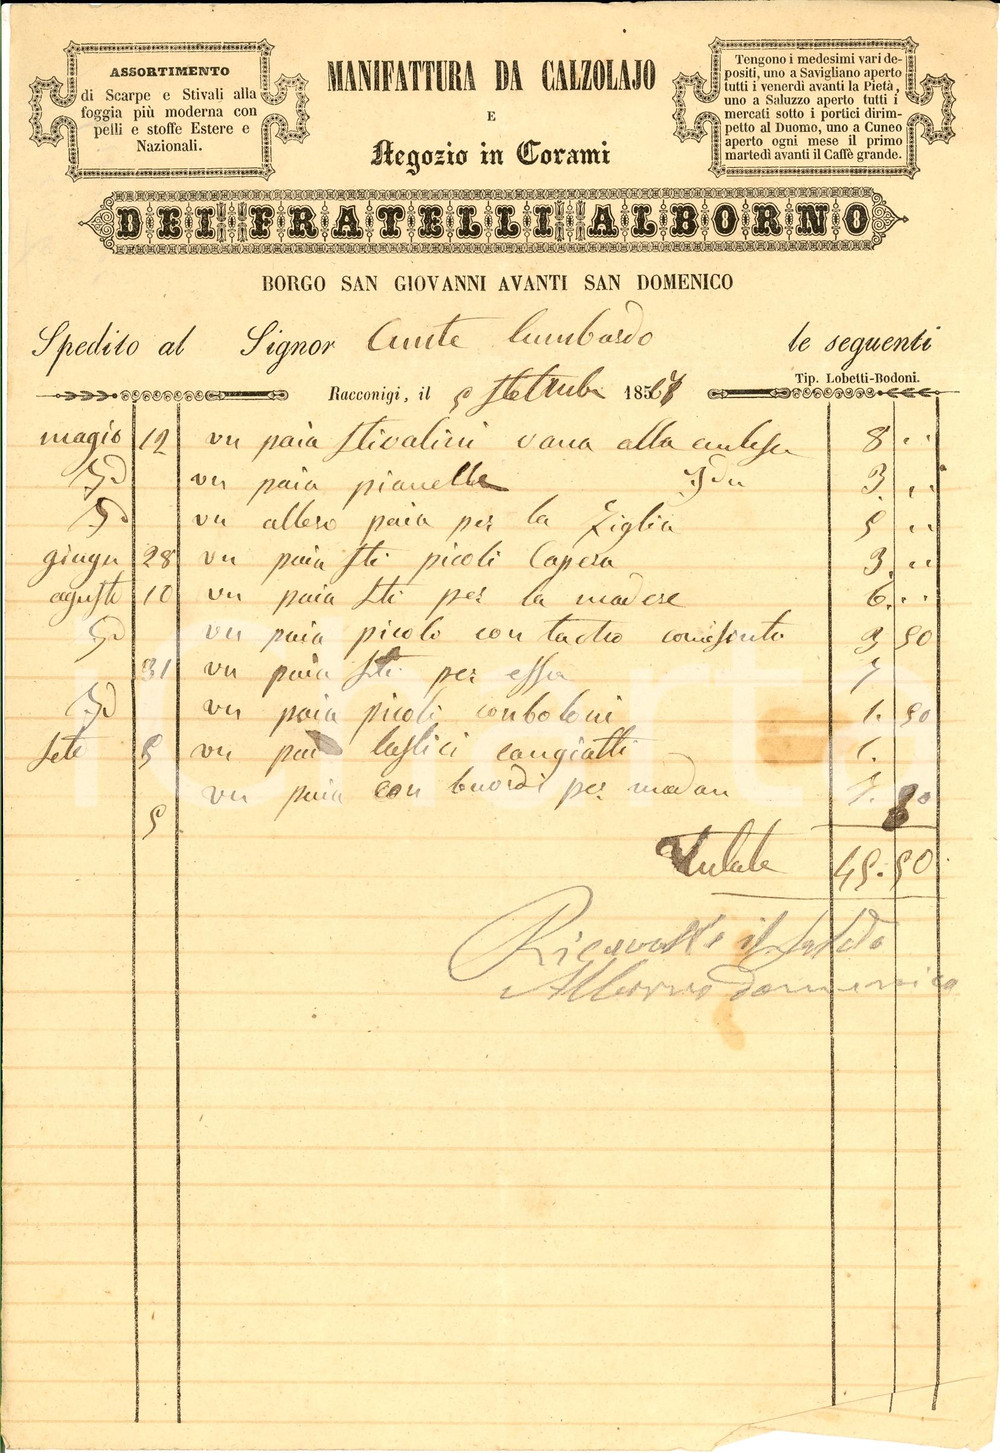 ASSORTIMENTO
di Scarpe e Stivali alla
foggia più moderna con
pelli e stoffe Estere e
Nazionali.
MANIFATTURA DA CALZOLAJO
E
Negozio in Corami
Tengono i medesimi vari de-
positi, uno a Savigliano aperto
tutti i venerdì avanti la Pietà,
uno a Saluzzo aperto tutti i
mercati sotto i portici dirim-
petto al Duomo, uno a Cuneo
aperto ogni mese il primo
martedì avanti il Caffè grande.
DEI FRATELLI ALBORNO
BORGO SAN GIOVANNI AVANTI SAN DOMENICO
Spedito al Signor Conte Lombardo le seguenti
Tip. Lobetti-Bodoni.
Racconigi, il 5 185
magio 12 un paia stivalini alla 8 ..
Id un paia pianelle 3. ..
Id un altero paia per la figlia 5 ..
giugn 28 un paia sti picoli 3. ..
agusti 10 un paia sti per la madere 6. ..
Id un paia picolo con 3 50
31 un paia sti per essa 7
Id un paia picoli con botoni 1. 50
sete 5 un pai lastici cangiatti 1.
5 un paia con per madam
Totale 45. 50
Ricevuto il saldo
Alborno domenico